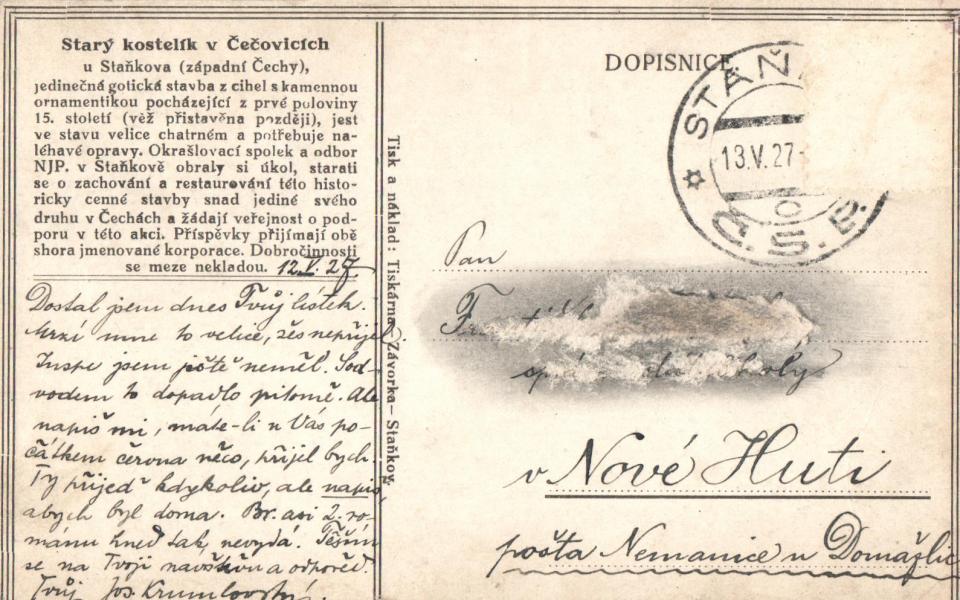 Starý kostelík v Čečovicích
u Staňkova (západní Čechy),
jedinečná gotická stavba z cihel s kamennou
ornamentikou pocházející z prvé poloviny
15. století (věž přistavěna později), jest
ve stavu velice chatrném a potřebuje na-
léhavé opravy. Okrašlovací spolek a odbor
NJP. v Staňkově obraly si úkol, starati
se o zachování a restaurování této histo-
ricky cenné stavby snad jediné svého
druhu v Čechách a žádají veřejnost o pod-
poru v této akci. Příspěvky přijímají obě
shora jmenované korporace. Dobročinnosti
se meze nekladou. 12.V.27
Dostal jsem dnes Tvůj lístek.
Mrzí mne to velice, žes nepřijel
Inspe jsem ještě neměl. Sod-
vodem to dopadlo pitomě. Ale
napiš mi, máte-li u Vás po-
čátkem června něco, přijel bych.
Ty přijeď kdykoliv, ale napiš,
abych byl doma. Br. asi 2. ro-
mánu hned tak nevydá. Těším
se na Tvoji návštěvu a odpověď.
Tvůj Jos. Krumlovský.
Tisk a náklad: Tiskárna Závorka – Staňkov.
DOPISNICE
STAŇ
13.V.27
Č.S.R.
Pan
školy
v Nové Huti
pošta Nemanice u Domažlic